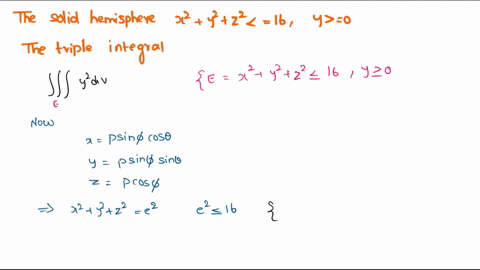 The solid hemisphere x² + y² + z² <= 16, y >= 0
The triple integral
∭_E y² dv { E = x² + y² + z² ≤ 16, y ≥ 0
Now
x = ρ sinϕ cosθ
y = ρ sinϕ sinθ
z = ρ cosϕ
⇒ x² + y² + z² = e² e² ≤ 16 {